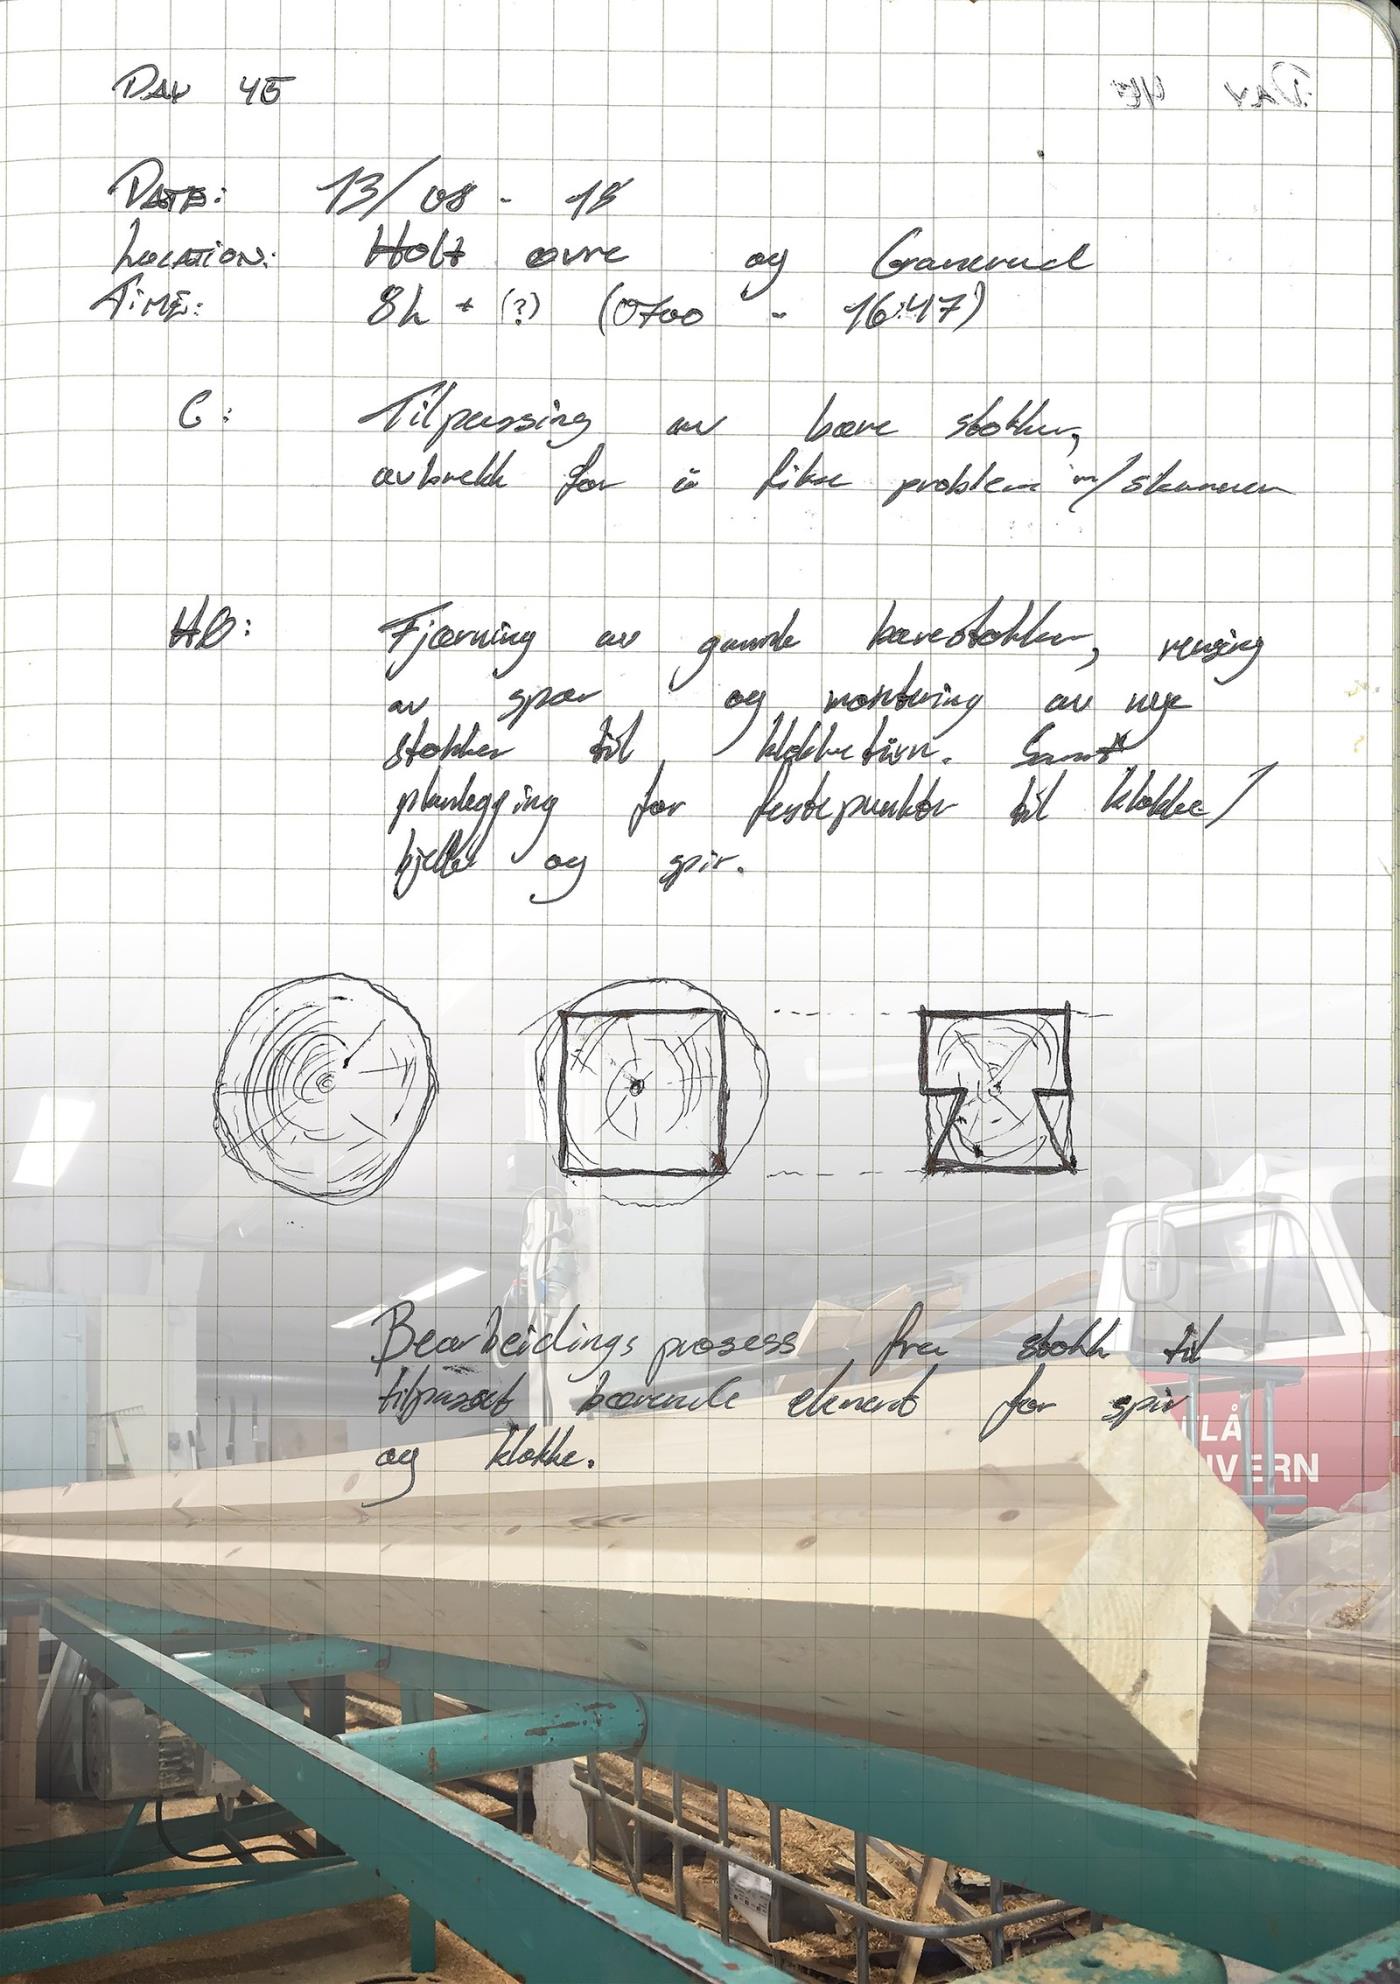 DAY 45
DATE: 13/08 - 18
LOCATION: Holt øvre og Granerud
TIME: 8h + (?) (0700 - 16:47)
G: Tilpassing av bære stokker,
avbrekk for å fikse problem m/ skanneren
HØ: Fjærning av gamle bærestokker, rensing
av spor og montering av nye
stokker til klokketårn. Samt
planlegging for festepunkter til klokke/
bjelle og spir.
Bearbeidings prosess fra stokk til
tilpasset bærende element for spir
og klokke.
LÅ
VERN